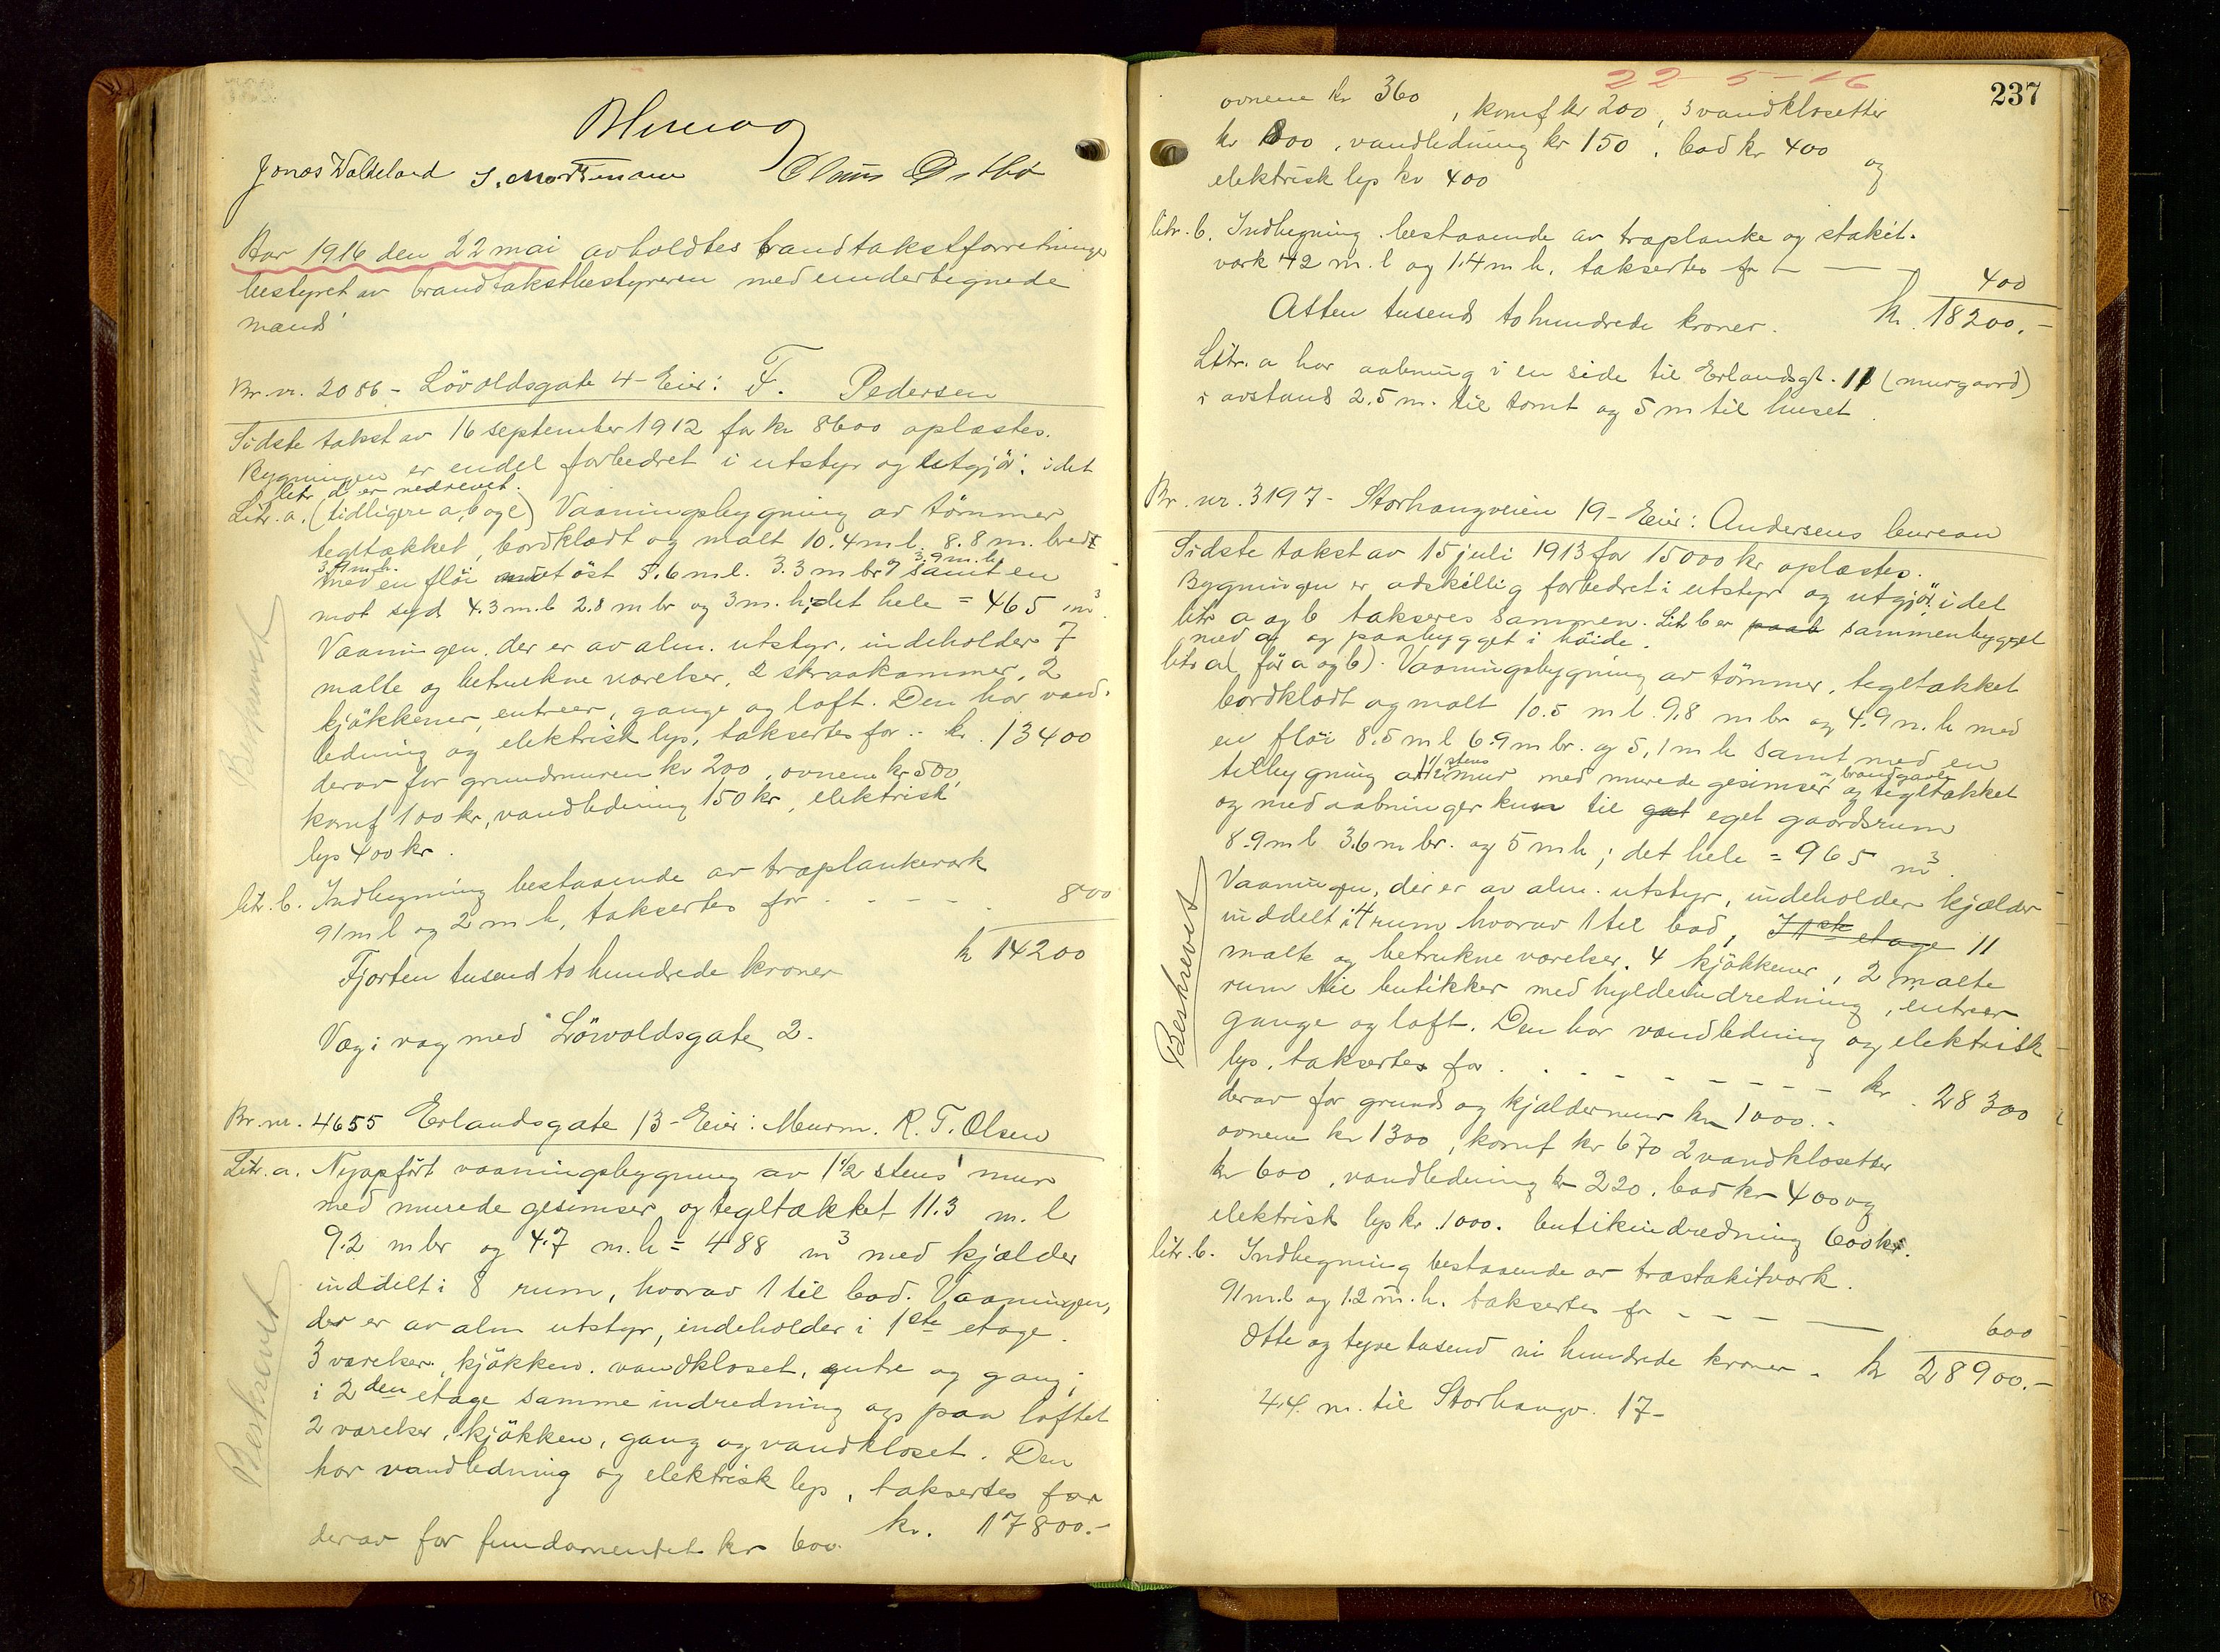 Jonas Waldeland S. Mortensen Claus Østbø
Aar 1916 den 22 mai avholdtes brandtakstforretninger
bestyret av brandtakstbestyreren med undertegnede
mænd:
Br. nr. 2086 - Lövoldsgate 4 - Eier: F. Pedersen
Sidste takst av 16 september 1912 for kr 8600 oplæstes.
Bygningen er endel forbedret i utstyr og utgjör: idet
litr. d er nedrevet.
Litr. a. (tidligere a, b og c) Vaaningsbygning av tömmer
tegltækket, bordklædt og malt 10.4 m l. 8.8 m. bredt
3.9 m. h. 3.9 m. h.
med en flöi mot öst 5.6 m l. 3.3 m br og samt en
mot syd 4.3 m. l 2.8 m br og 3 m. h; det hele = 465 m³
Vaaningen, der er av alm. utstyr, indeholder 7
malte og betrukne værelser, 2 skraakammer, 2
kjökkener, entreer, gange og loft. Den har vand-
ledning og elektrisk lys, taksertes for - kr. 13400
derav for grundmuren kr 200, ovnene kr 500,
komf 100 kr, vandledning 150 kr, elektrisk
lys 400 kr.
litr. b. Indhegning bestaaende av træplankeværk
91 m l og 2 m h, taksertes for . - - - . 800
kr 14200
Fjorten tusend to hundrede kroner
Væg i væg med Lövoldsgate 2.
Beskrevet
Br. nr. 4655 Erlandsgate 13 - Eier: Murm. R. T. Olsen
Litr. a. Nyopfört vaaningsbygning av 1½ stens mur
med murede gesimser og tegltækket 11.3 m. l
9.2 m br og 4.7 m. h = 488 m³ med kjælder
inddelt i 8 rum, hvorav 1 til bad. Vaaningen,
der er av alm utstyr, indeholder i 1ste etage.
3 værelser, kjökken, vandkloset, entre og gang;
i 2den etage samme indredning og paa loftet
2 værelser, kjökken, gang og vandkloset. Den
har vandledning og elektrisk lys, taksertes for
kr. 17800.-
derav for fundamentet kr 600
Beskrevet
22-5-16
237
ovnene kr 360, komf kr 200, 3 vandklosetter
kr 800, vandledning kr 150, bad kr 400 og
elektrisk lys kr 400
litr. b. Indhegning bestaaende av træplanke og stakit-
værk 42 m. l og 1.4 m h. taksertes for - - - 400
kr. 18200.-
Atten tusend to hundrede kroner.
Litr. a har aabning i en side til Erlandsgt. 11 (murgaard)
i avstand 2.5 m. til tomt og 5 m til huset.
Br. nr. 3197 - Storhaugveien 19 - Eier: Andersens bureau
Sidste takst av 15 juli 1913 for 15000 kr oplæstes.
Bygningen er adskillig forbedret i utstyr og utgjör: idet
litr a og b takseres sammen. Litr b er paab sammenbygget
med a, og paabygget i höide.
litr a( för a og b). Vaaningsbygning av tömmer, tegltækket
bordklædt og malt 10.5 m l. 9.8 m br og 4.9 m. h med
en flöi 8.5 m l 6.9 m br. og 5,1 m h samt med en
tilbygning av 1½ stens mur med murede gesimser, brandgavl og tegltækket
og med aabninger kun til gat eget gaardsrum
8.9 m l 3.6 m br. og 5 m h; det hele = 965 m³.
Vaaningen, der er av alm. utstyr, indeholder kjælder
inddelt i 4 rum hvorav 1 til bad, I 1ste etage 11
malte og betrukne værelser, 4 kjökkener, 2 malte
rum til butikker med hyldeindredning, entreer
gange og loft. Den har vandledning og elektrisk
lys, taksertes for . . - - - - - - kr. 28300
derav for grund og kjældermur kr 1000.-
ovnene kr 1300, komf kr 670 2 vandklosetter
kr 600, vandledning kr 220. bad kr 400 og
elektrisk lys kr. 1000. butikindredning 600 kr.
litr. b. Indhegning bestaaende av træstakitværk.
91 m. l og 1.2 m. h. taksertes for - - - - 600
Otte og tyve tusend ni hundrede kroner - kr 28900.-
4.4. m. til Storhaugv. 17-
Beskrevet